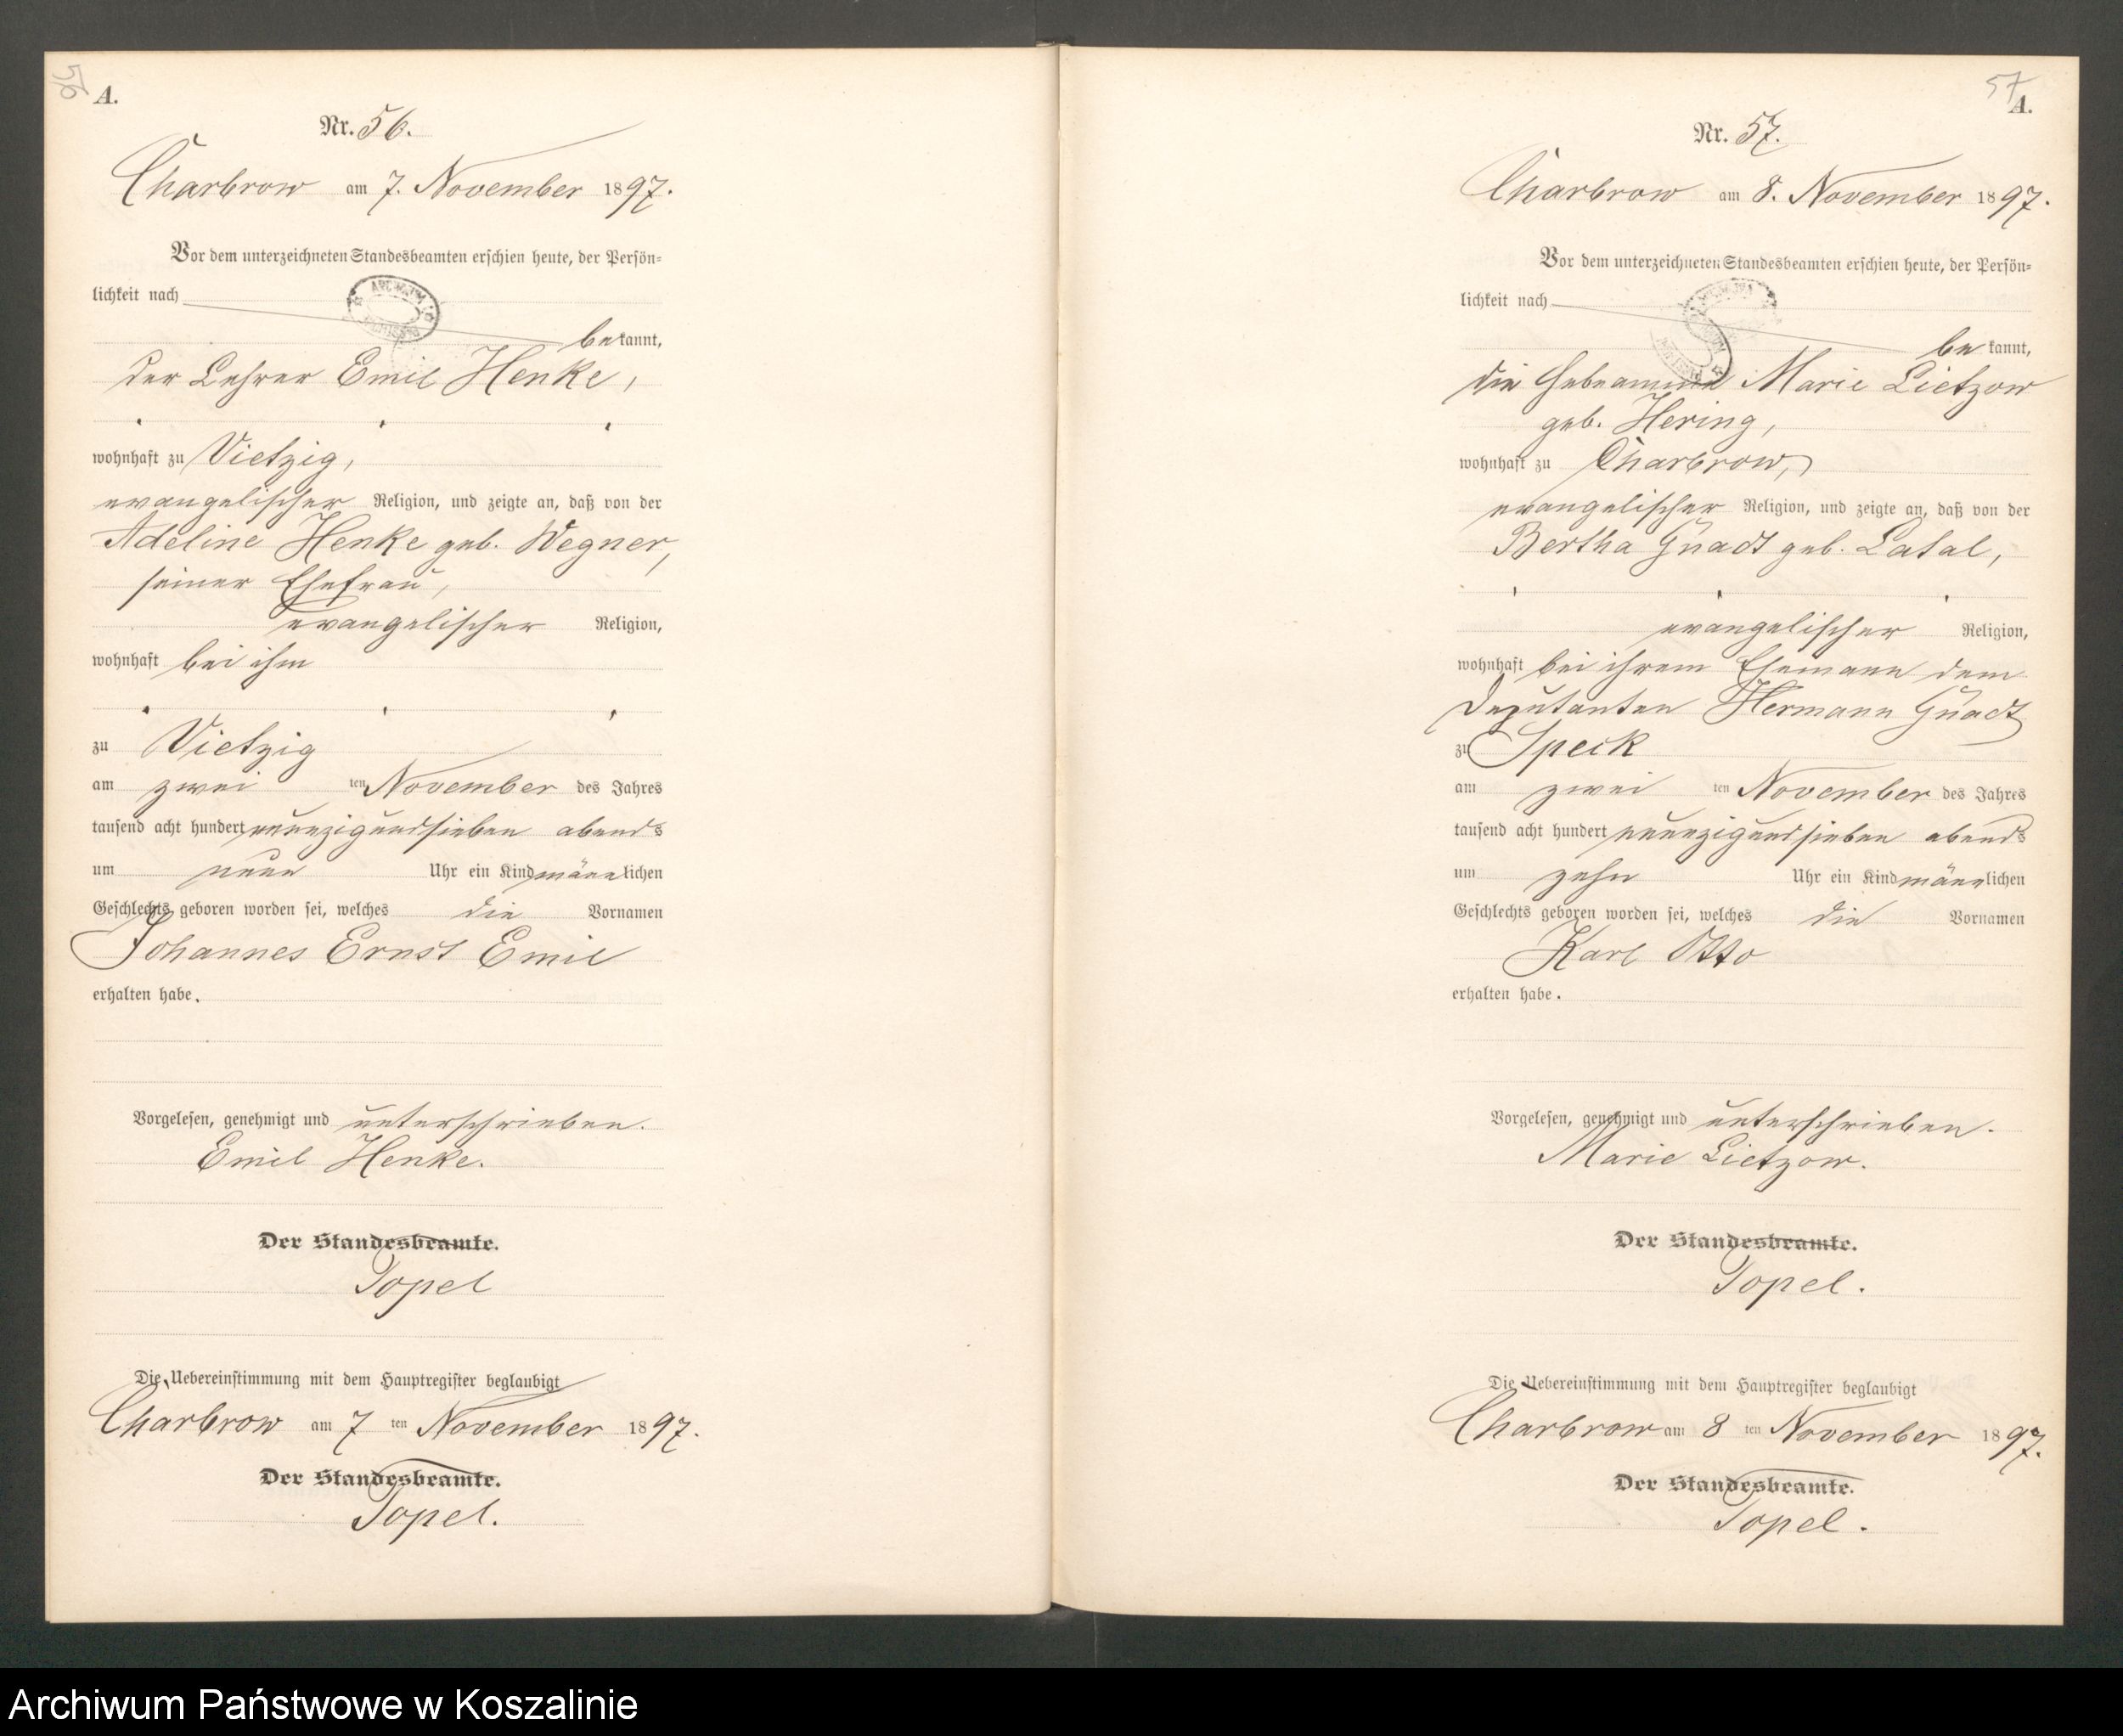 56
A.
Nr. 56.
Charbrow am 7. November 1897.
Vor dem unterzeichneten Standesbeamten erschien heute, der Persön-
lichkeit nach
bekannt,
der Lehrer Emil Henke,
wohnhaft zu Vietzig,
evangelischer Religion, und zeigte an, daß von der
Adeline Henke geb. Wegner,
seiner Ehefrau,
evangelischer Religion,
wohnhaft bei ihm
zu Vietzig
am zwei ten November des Jahres
tausend acht hundert neunzigundsieben abends
um neun Uhr ein Kind männlichen
Geschlechts geboren worden sei, welches die Vornamen
Johannes Ernst Emil
erhalten habe.
Vorgelesen, genehmigt und unterschrieben.
Emil Henke.
Der Standesbeamte.
Topel
Die Uebereinstimmung mit dem Hauptregister beglaubigt
Charbrow am 7 ten November 1897.
Der Standesbeamte.
Topel.
57
A.
Nr. 57.
Charbrow am 8. November 1897.
Vor dem unterzeichneten Standesbeamten erschien heute, der Persön-
lichkeit nach
bekannt,
die Hebeamme Marie Lietzow
geb. Hering,
wohnhaft zu Charbrow,
evangelischer Religion, und zeigte an, daß von der
Bertha Gnadt geb. Latal,
evangelischer Religion,
wohnhaft bei ihrem Ehemann dem
Deputanten Hermann Gnadt
zu Speck
am zwei ten November des Jahres
tausend acht hundert neunzigundsieben abends
um zehn Uhr ein Kind männlichen
Geschlechts geboren worden sei, welches die Vornamen
Karl Otto
erhalten habe.
Vorgelesen, genehmigt und unterschrieben.
Marie Lietzow.
Der Standesbeamte.
Topel.
Die Uebereinstimmung mit dem Hauptregister beglaubigt
Charbrow am 8 ten November 1897.
Der Standesbeamte.
Topel.
Archiwum Państwowe w Koszalinie